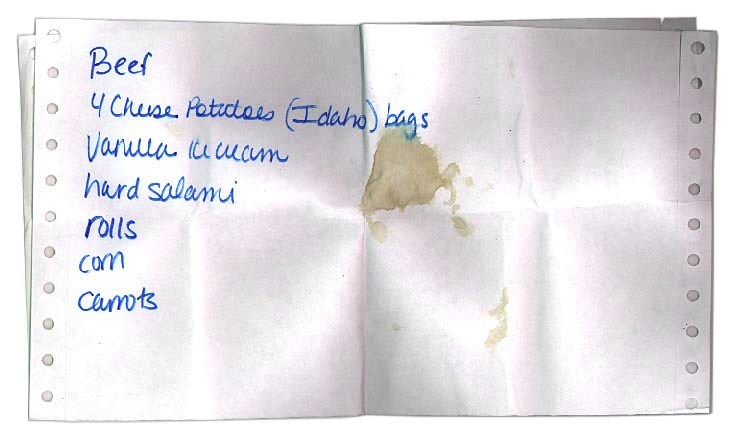 Beef
4 Cheese Potatoes (Idaho) bags
Vanilla ice cream
hard salami
rolls
corn
carrots